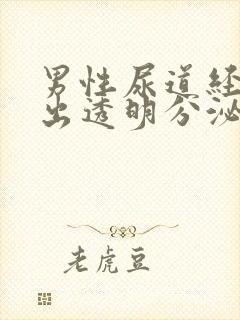 男性尿道经
出透明分泌
老虎豆